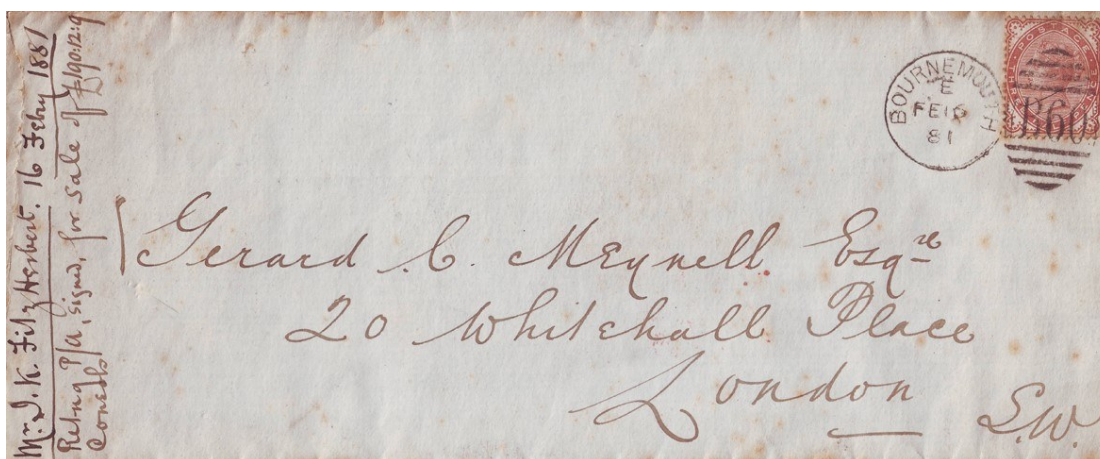 Mr. J. K. FitzHerbert. 16 Febry 1881
Retng P/a, signd, for sale of £190:12:9
Consols
BOURNEMOUTH
E
FE 16
81
POSTAGE
B60
Gerard C. Meynell Esqre
20 Whitehall Place
London
S.W.